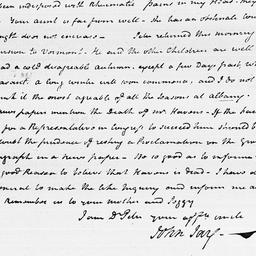 been indisposed with Rheumatic pains in my head. They
Your Aunt is far from well – she has an obstinate
ength does not encrease – Peter returned this morning
to Vermont. He and the other Children are well
had a cold disagreeable autumn, except a few Days past, wh
pleasant. a long winter will soon commence, and I do not
it the most agreable of all the Seasons at albany.
news papers mention the Death of Mr Havens – If the
for a Representative in congress to succeed him should be
the prudence of issuing a Proclamation on the
paragraph in a news paper. – Be so good as to inform
good Reason to believe that Havens is Dead – I have
to make the like Inquiry and inform me
Remember us to your mother and Peggy
I am Dr Peter your affte uncle
John Jay –